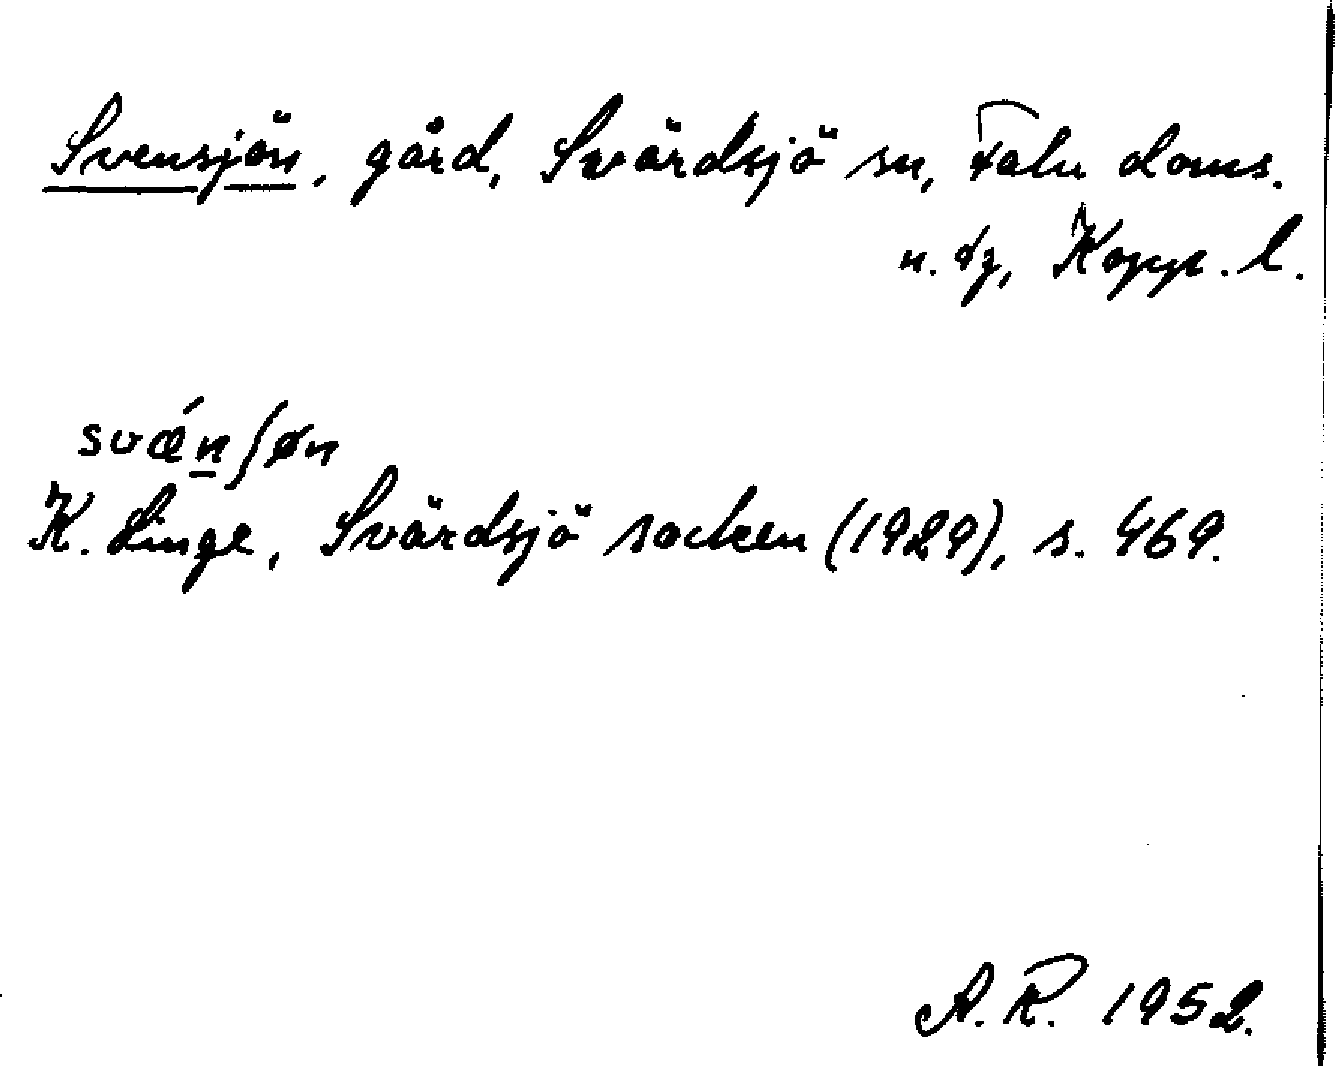 Svensjön, gård, Svärdsjö sn, Falu doms.
n. dg, Kopp. l.
svǽn̲ʃøn
K. Linge, Svärdsjö socken (1929), s. 469.
A. R. 1952.